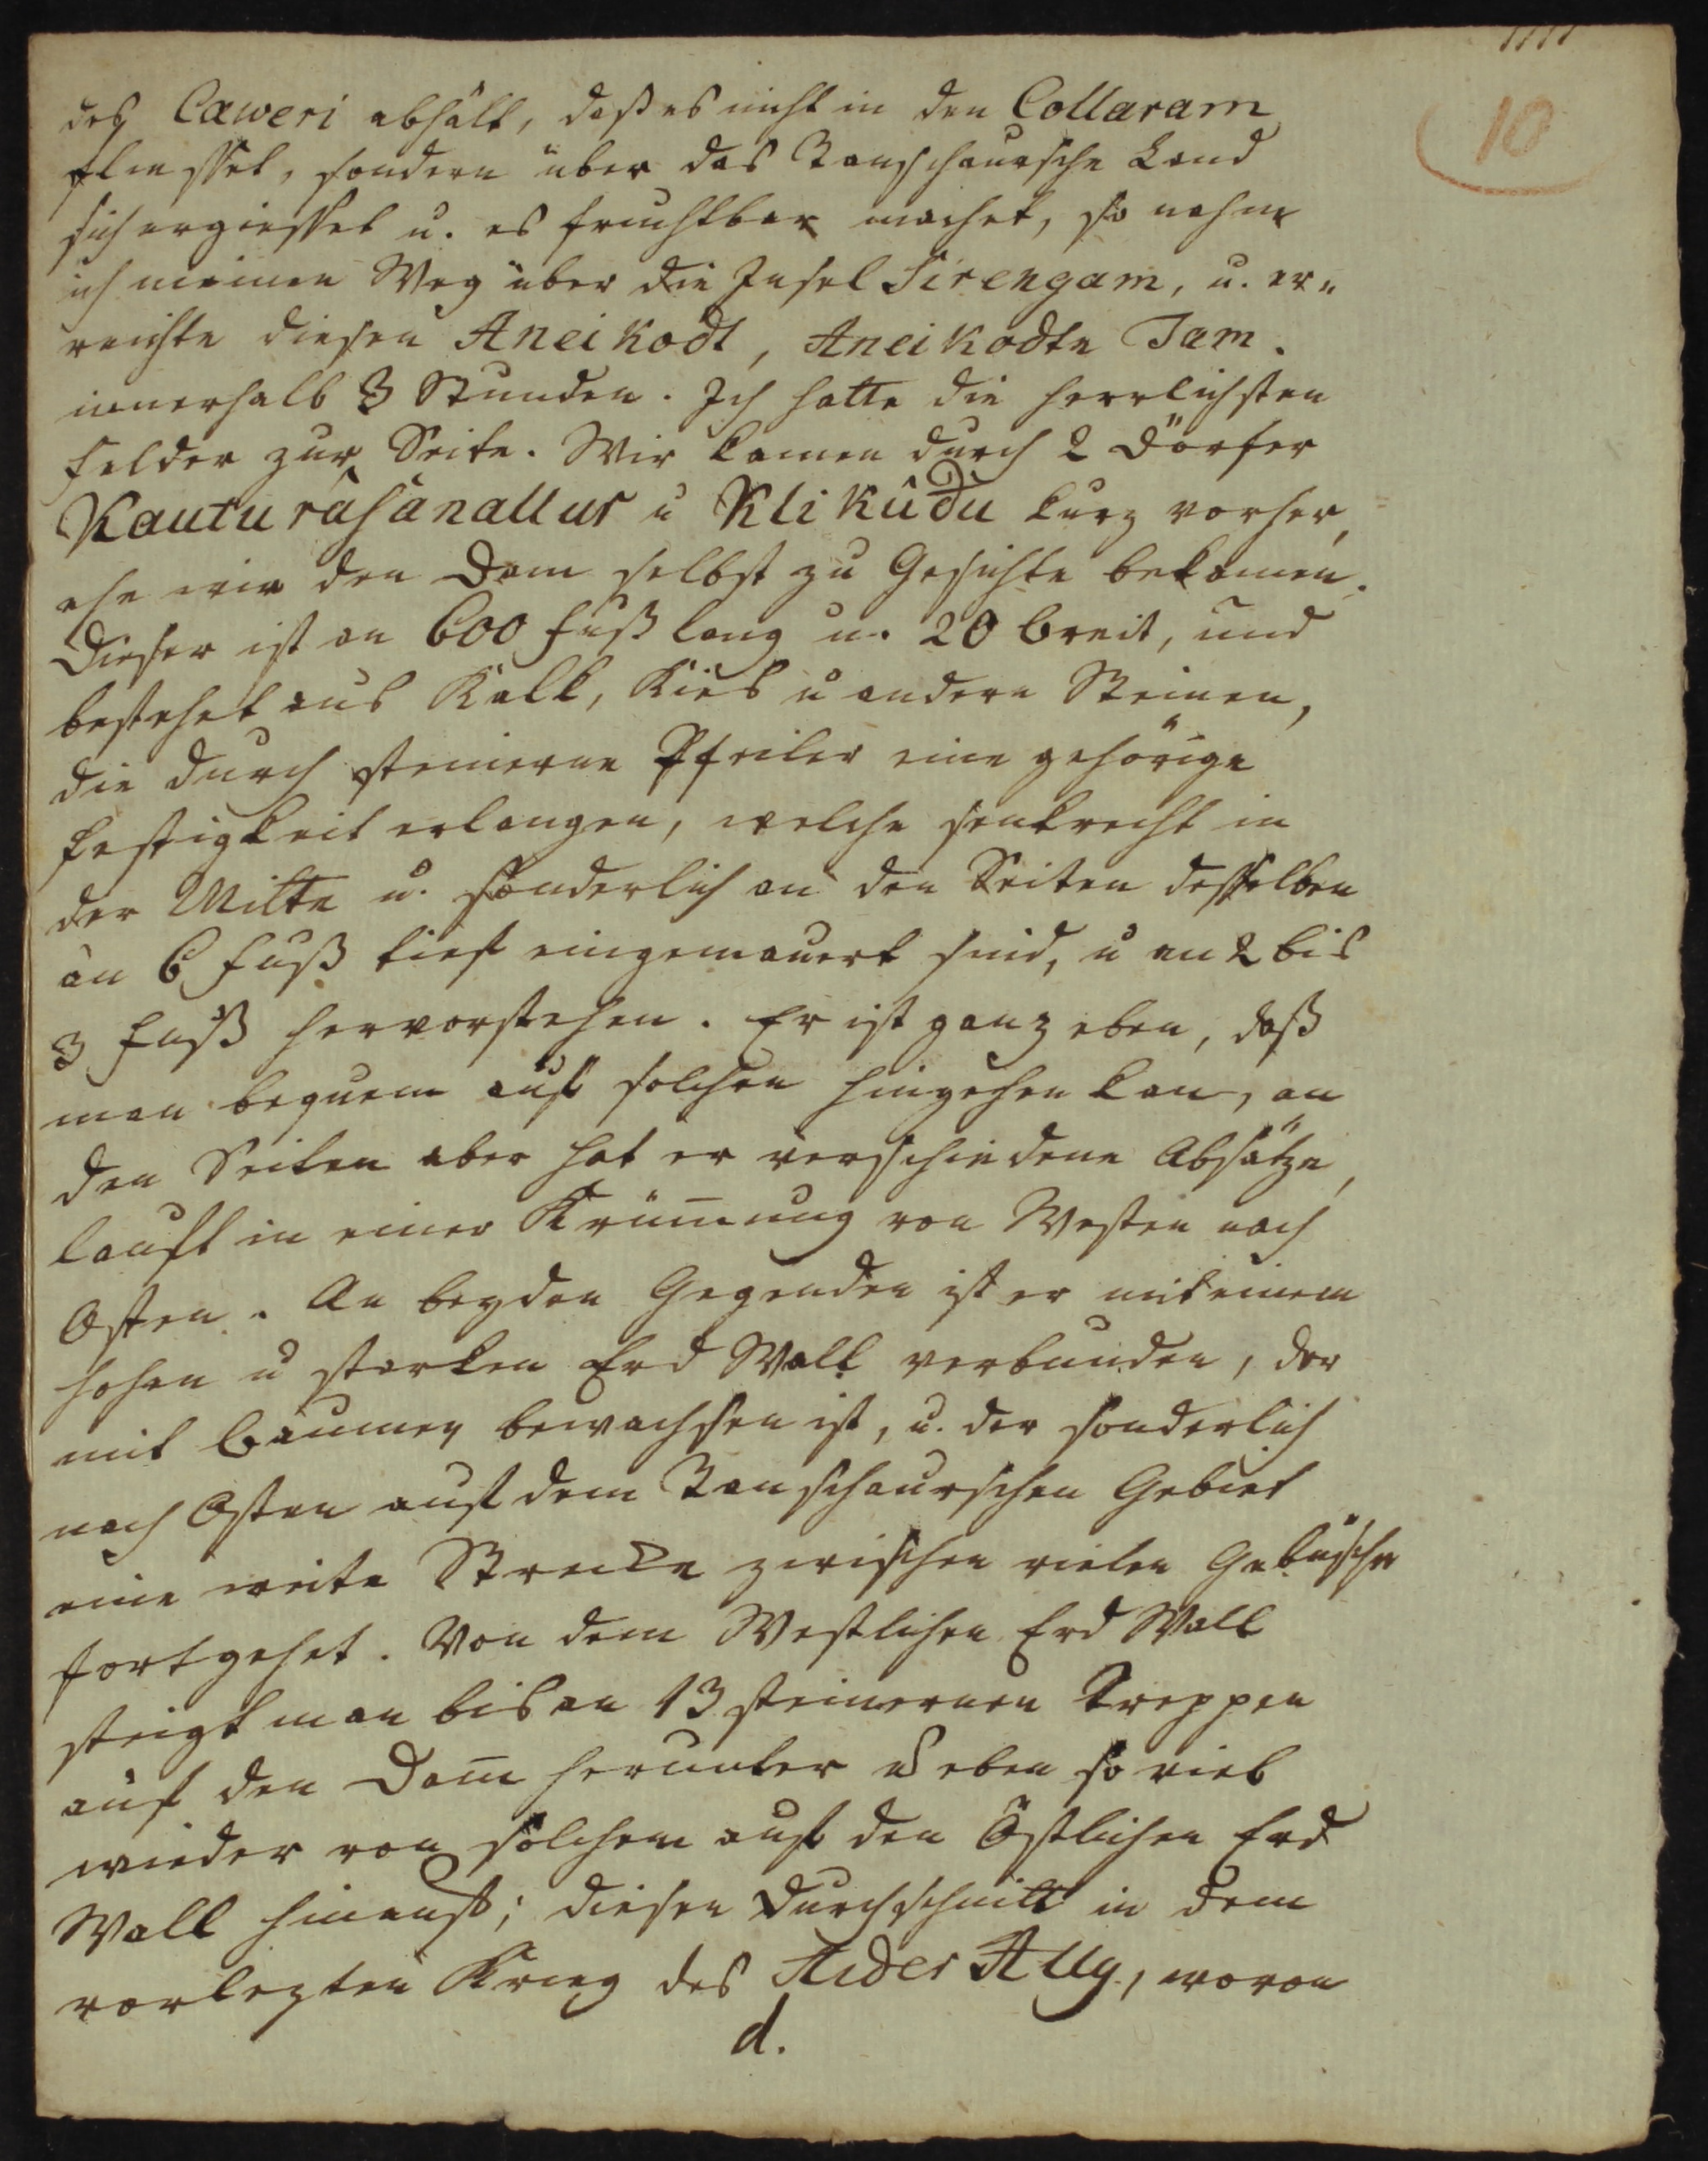 10
des Caweri abhält, daß es nicht in den Collaram
fliesset, sondern über das Tanschaursche Land
sich ergiesset u. es fruchtbar machet, so nahm
ich meinen Weg über die Insel Sirengam, u. er„
reichte diesen Aneikodt, Aneikodte Tam.
innerhalb 3 Stunden. Ich hatte die herrlichsten
Felder zur Seite. Wir kamen durch 2 Dörfer
Kauturäsänallur u Klikûdu kurz vorher,
ehe wir den Dam selbst zu Gesichte bekamen.
Dieser ist an 600 Fuß lang u. 20 breit, und
bestehet aus Kalk, Kies u andern Steinen,
die durch steinerne Pfeiler eine gehörige
Festigkeit erlangen, welche senkrecht in
der Mitte u. sonderlich an den Seiten desselben
an 6 Fuß tief eingemauert sind, u an 2 bis
3 Fuß hervorstehen. Er ist ganz eben, daß
man bequem auf solchen hingehen kan, an
den Seiten aber hat er verschiedene Absätze,
lauft in einer Krüm̅ung von Westen nach
Osten. An beyden Gegenden ist er mit einem
hohen u starken Erd Wall verbunden, der
mit Bäumen bewachsen ist, u. der sonderlich
nach Osten auf dem Tanschaurschen Gebiet
eine weite Strecke zwischen vielen Gebüschen
fortgehet. Von dem Westlichen Erd Wall
steigt man bis an 13 steinernen Treppen
auf den Dam̅ herunter u eben so viel
wieder von solchem auf den Östlichen Erd
Wall hinauf; diesen Durchschnitt in dem
vorlezten Krieg des Aider Ally, wovon
d.